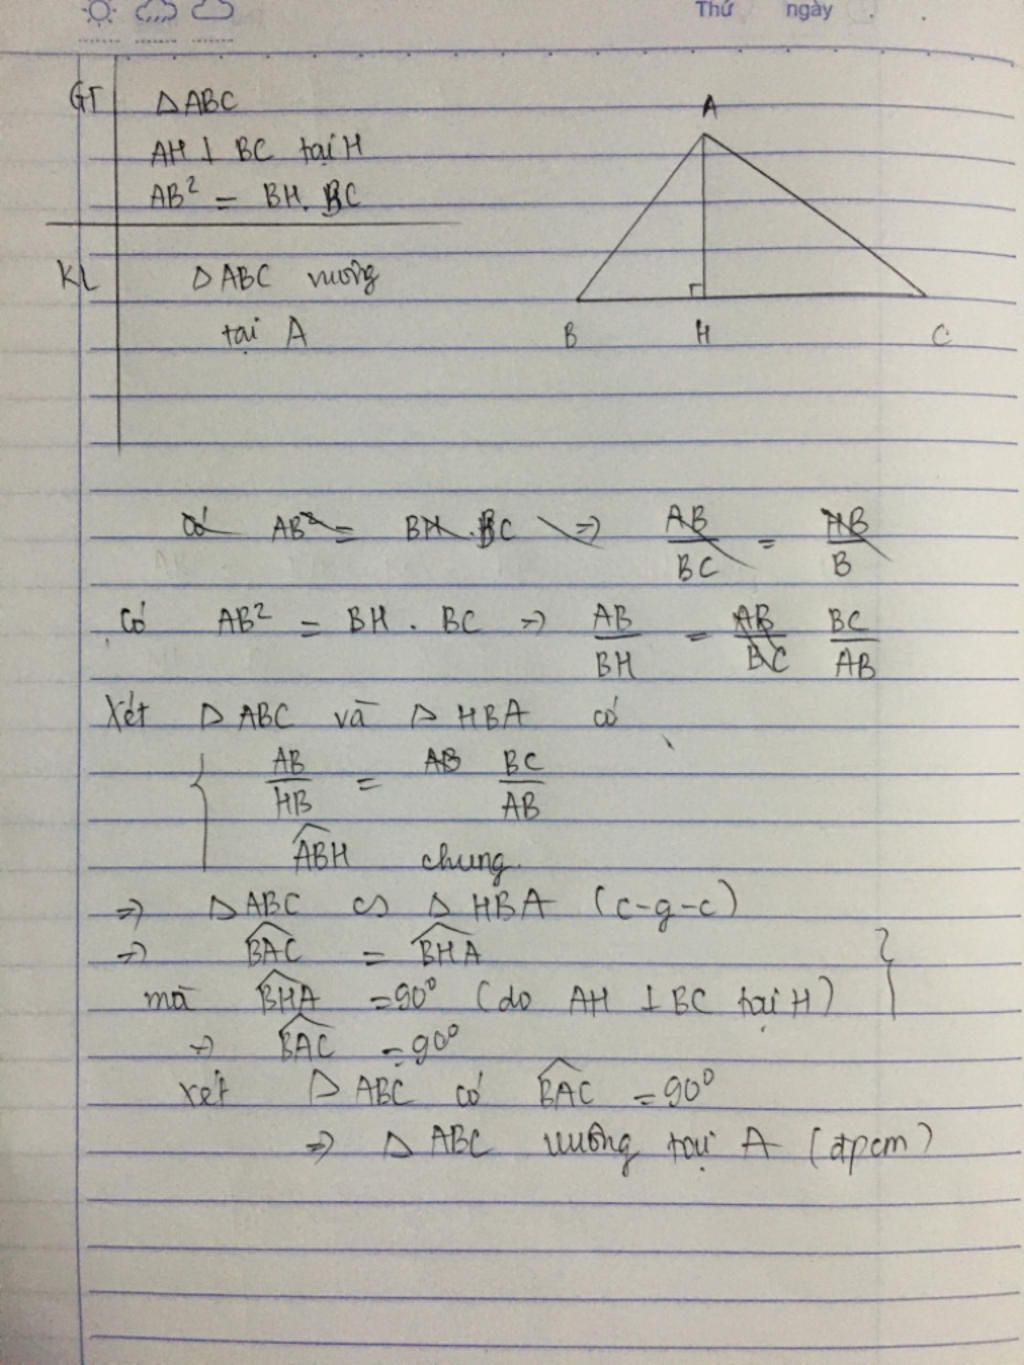 Thứ ngày
GT △ABC
AH ⊥ BC tại H
AB² = BH. BC
KL △ABC vuông
tại A
A
B H C
Có AB² = BH . BC => AB/BC = HB/B
Có AB² = BH . BC => AB/BH = AB/BC BC/AB
Xét △ABC và △HBA có
{ AB/HB = AB BC/AB
ABH chung.
=> △ABC ∽ △HBA (c-g-c)
=> BAC = BHA }
mà BHA = 90° (do AH ⊥ BC tại H)
=> BAC = 90°
Xét △ABC có BAC = 90°
=> △ABC vuông tại A (đpcm)